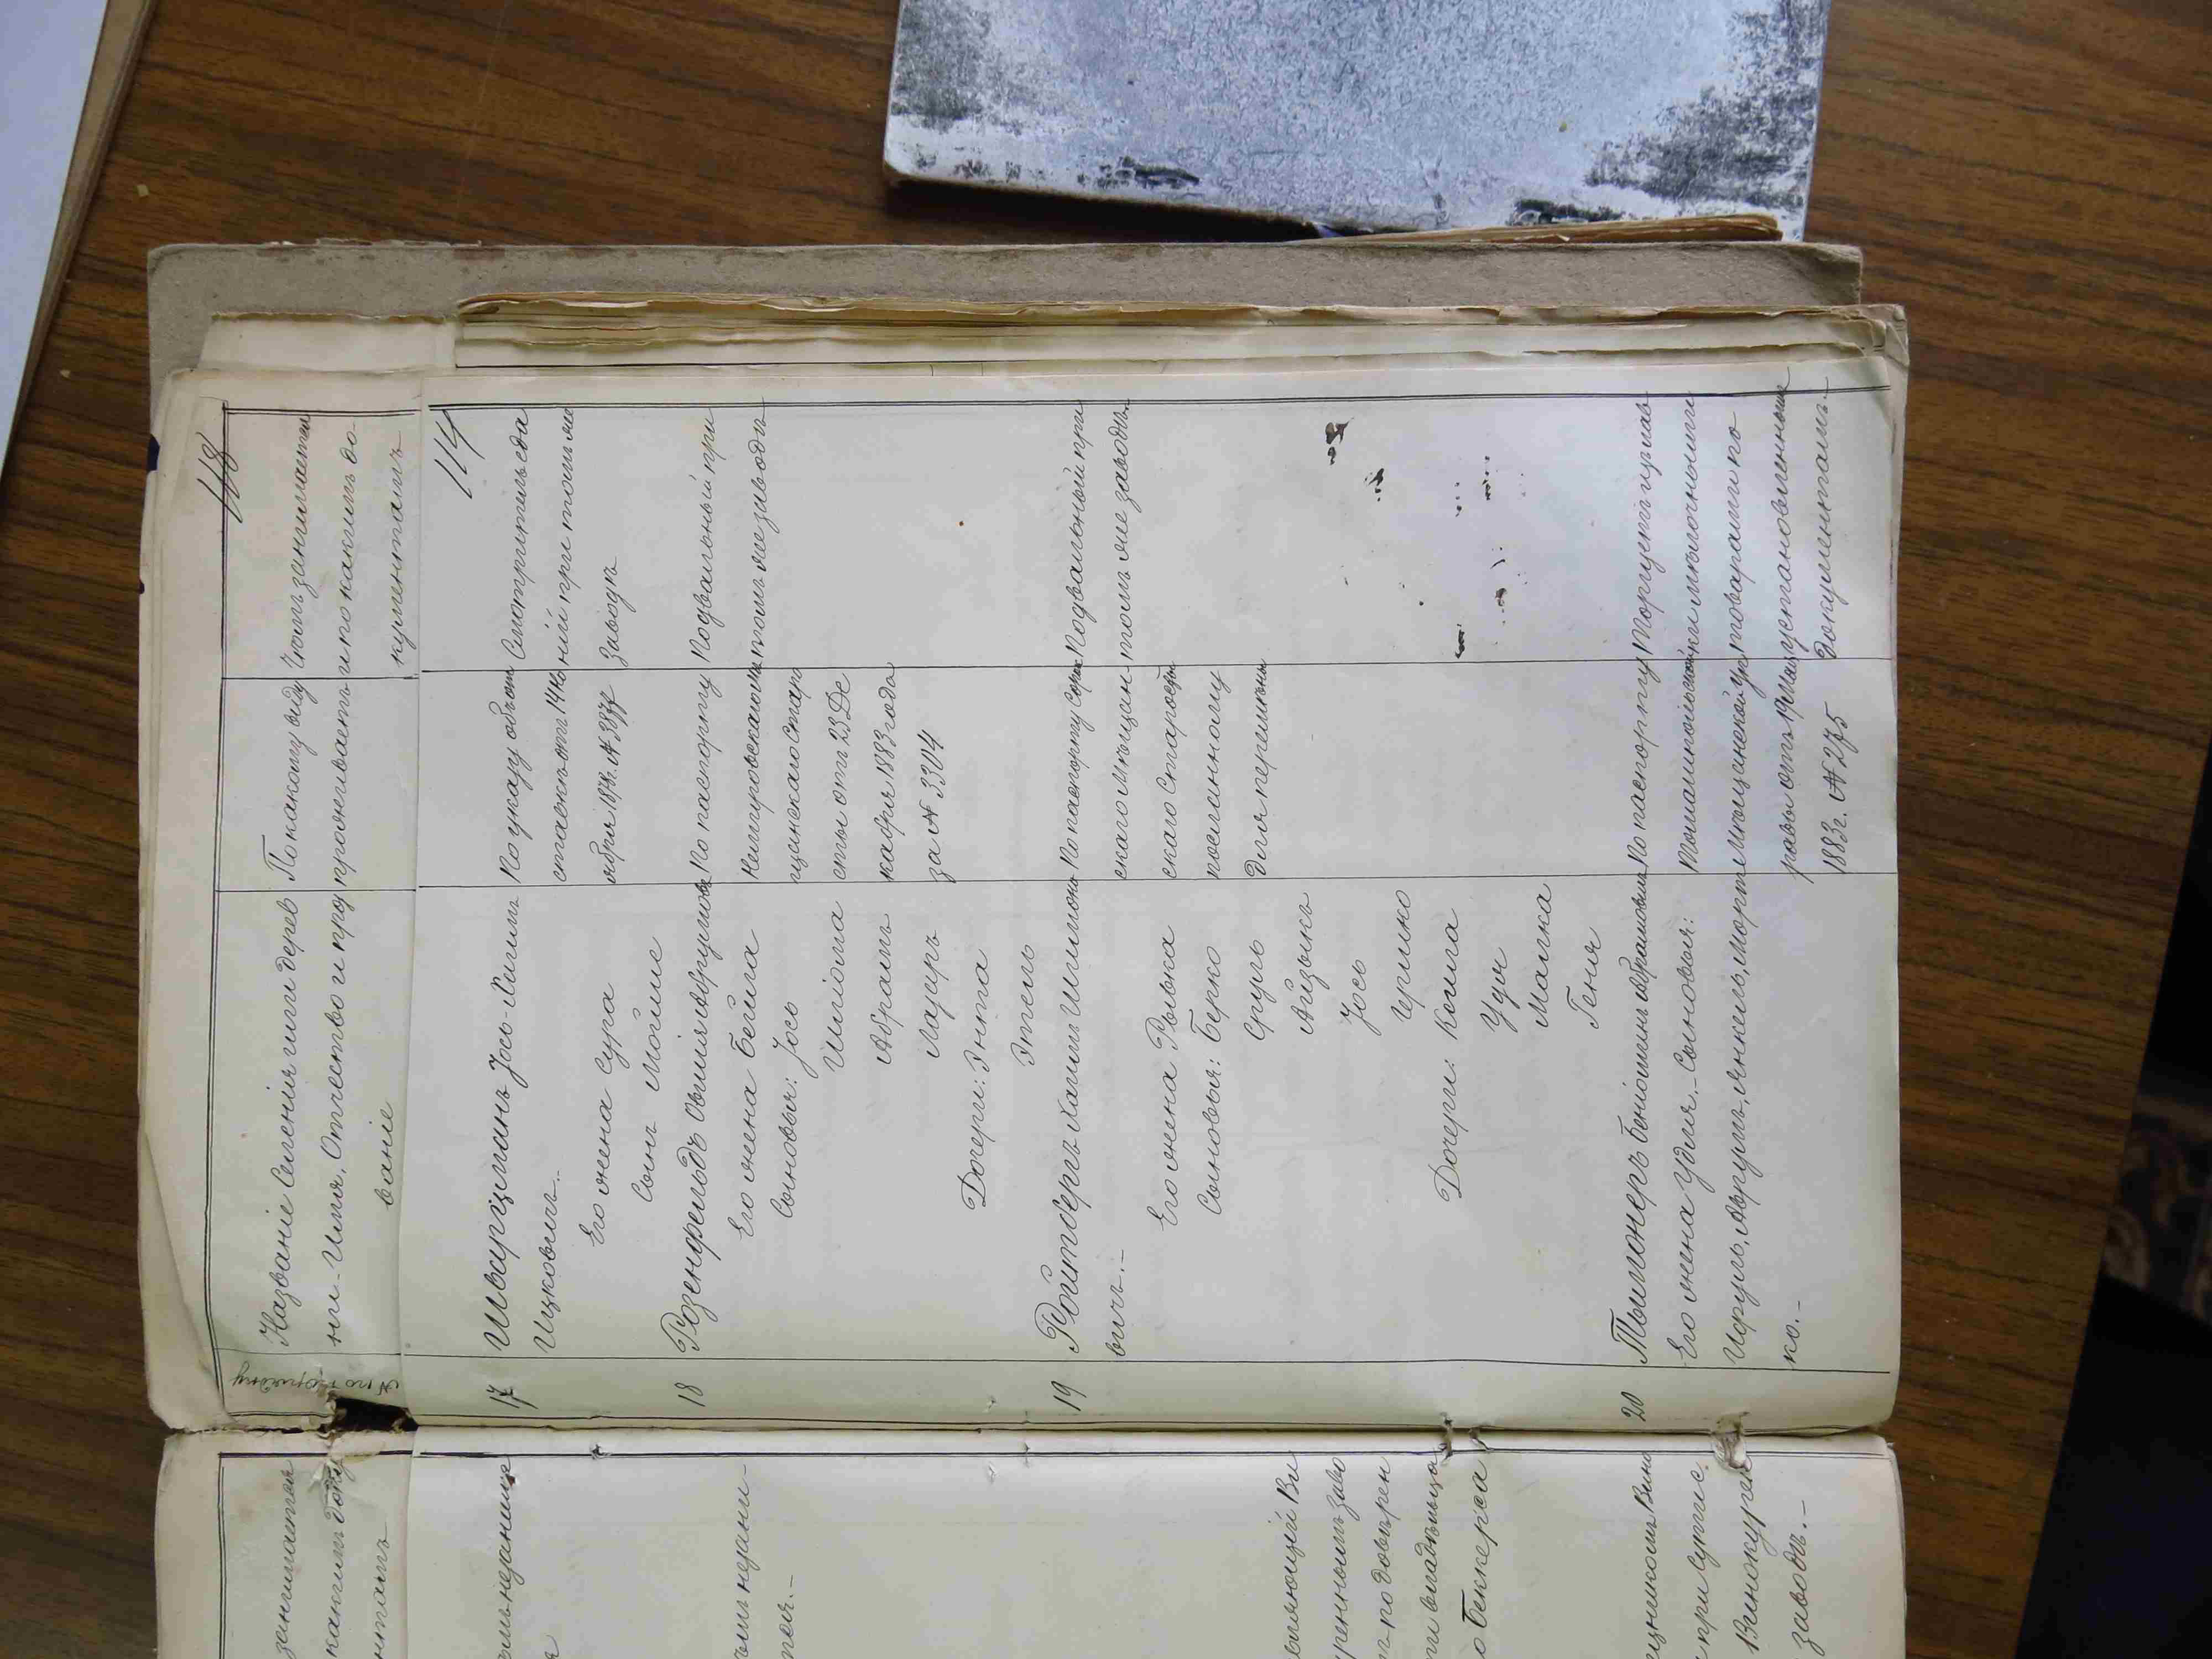 118
№ по порядку
Названіе Селенія или дерев
ни. Имя, Отчество и про
званіе
По какому виду
проживаетъ
Чѣмъ занимается
и по какимъ до-
кументамъ
114
17
Шварцманъ Іось-Хаимъ
Ицковичъ.-
Его жена Сура
Сынъ Мойше
По указу объ от
ставкѣ отъ 14
ября № 3377
Смотритель зда
ній при томъ же
заводѣ
18
Розенфельдъ Овшія Абрумовъ
Его жена Бейла
Сыновья: Іось
Шліома
Абрамъ
Лазеръ
Дочери: Энта
Этель
По паспорту
Немировскаго Мѣ
щанскаго Старо
сты отъ 23 Де
кабря 1883 года
за № 3304
Подвальный при
томъ же заводѣ
19
Ройтбергъ Хаимъ Шлиомо
вичъ.-
Его жена Рывка
Сыновья: Берко
Сруль
Айзыкъ
Іось
Гершко
Дочери: Койла
Удя
Малка
Геня
По паспорту
скаго Мѣщан
скаго Старосты
посланному
для перемѣны
Подвальный при
томъ же заводѣ.
20
Тымонеръ Беніоминъ Абрамовичъ
Его жена Удля.- Сыновья:
Исруль, Аврумъ, Янкель, Морт
ко.-
По паспорту
Томашпольской
Мѣщанской Уп
равы отъ 19 Мая
1883г. № 275
Торгуетъ
ки и мѣлочными
товарами по
установленнымъ
документамъ.-
занимается
какимъ доку
нтамъ
вляющій Ви
ренномъ заво
по довѣрен
ти владѣльца
о Беккерса
щикомъ Вино
при Сутис.
Винокурен
заводѣ.-